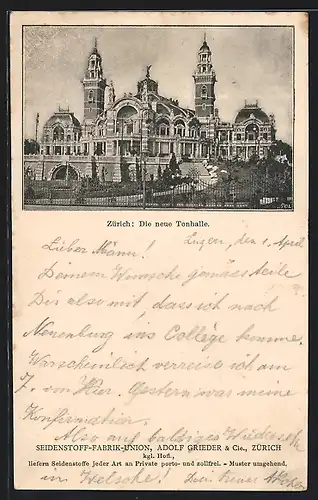 Zürich: Die neue Tonhalle.
Lieber Mann! Luzern, den 1. April
Deinem Wunsche gemäss teile
Dir also mit, dass ich nach
Neuenburg ins Collège komme.
Warscheinlich verreise ich am
7. von Hier. Gestern war meine
Konfirmation.
Also auf baldiges Wiederseh
SEIDENSTOFF-FABRIK-UNION, ADOLF GRIEDER & Cie., ZÜRICH
kgl. Hofl.,
liefern Seidenstoffe jeder Art an Private porto- und zollfrei. - Muster umgehend.
im Welsche! Dein